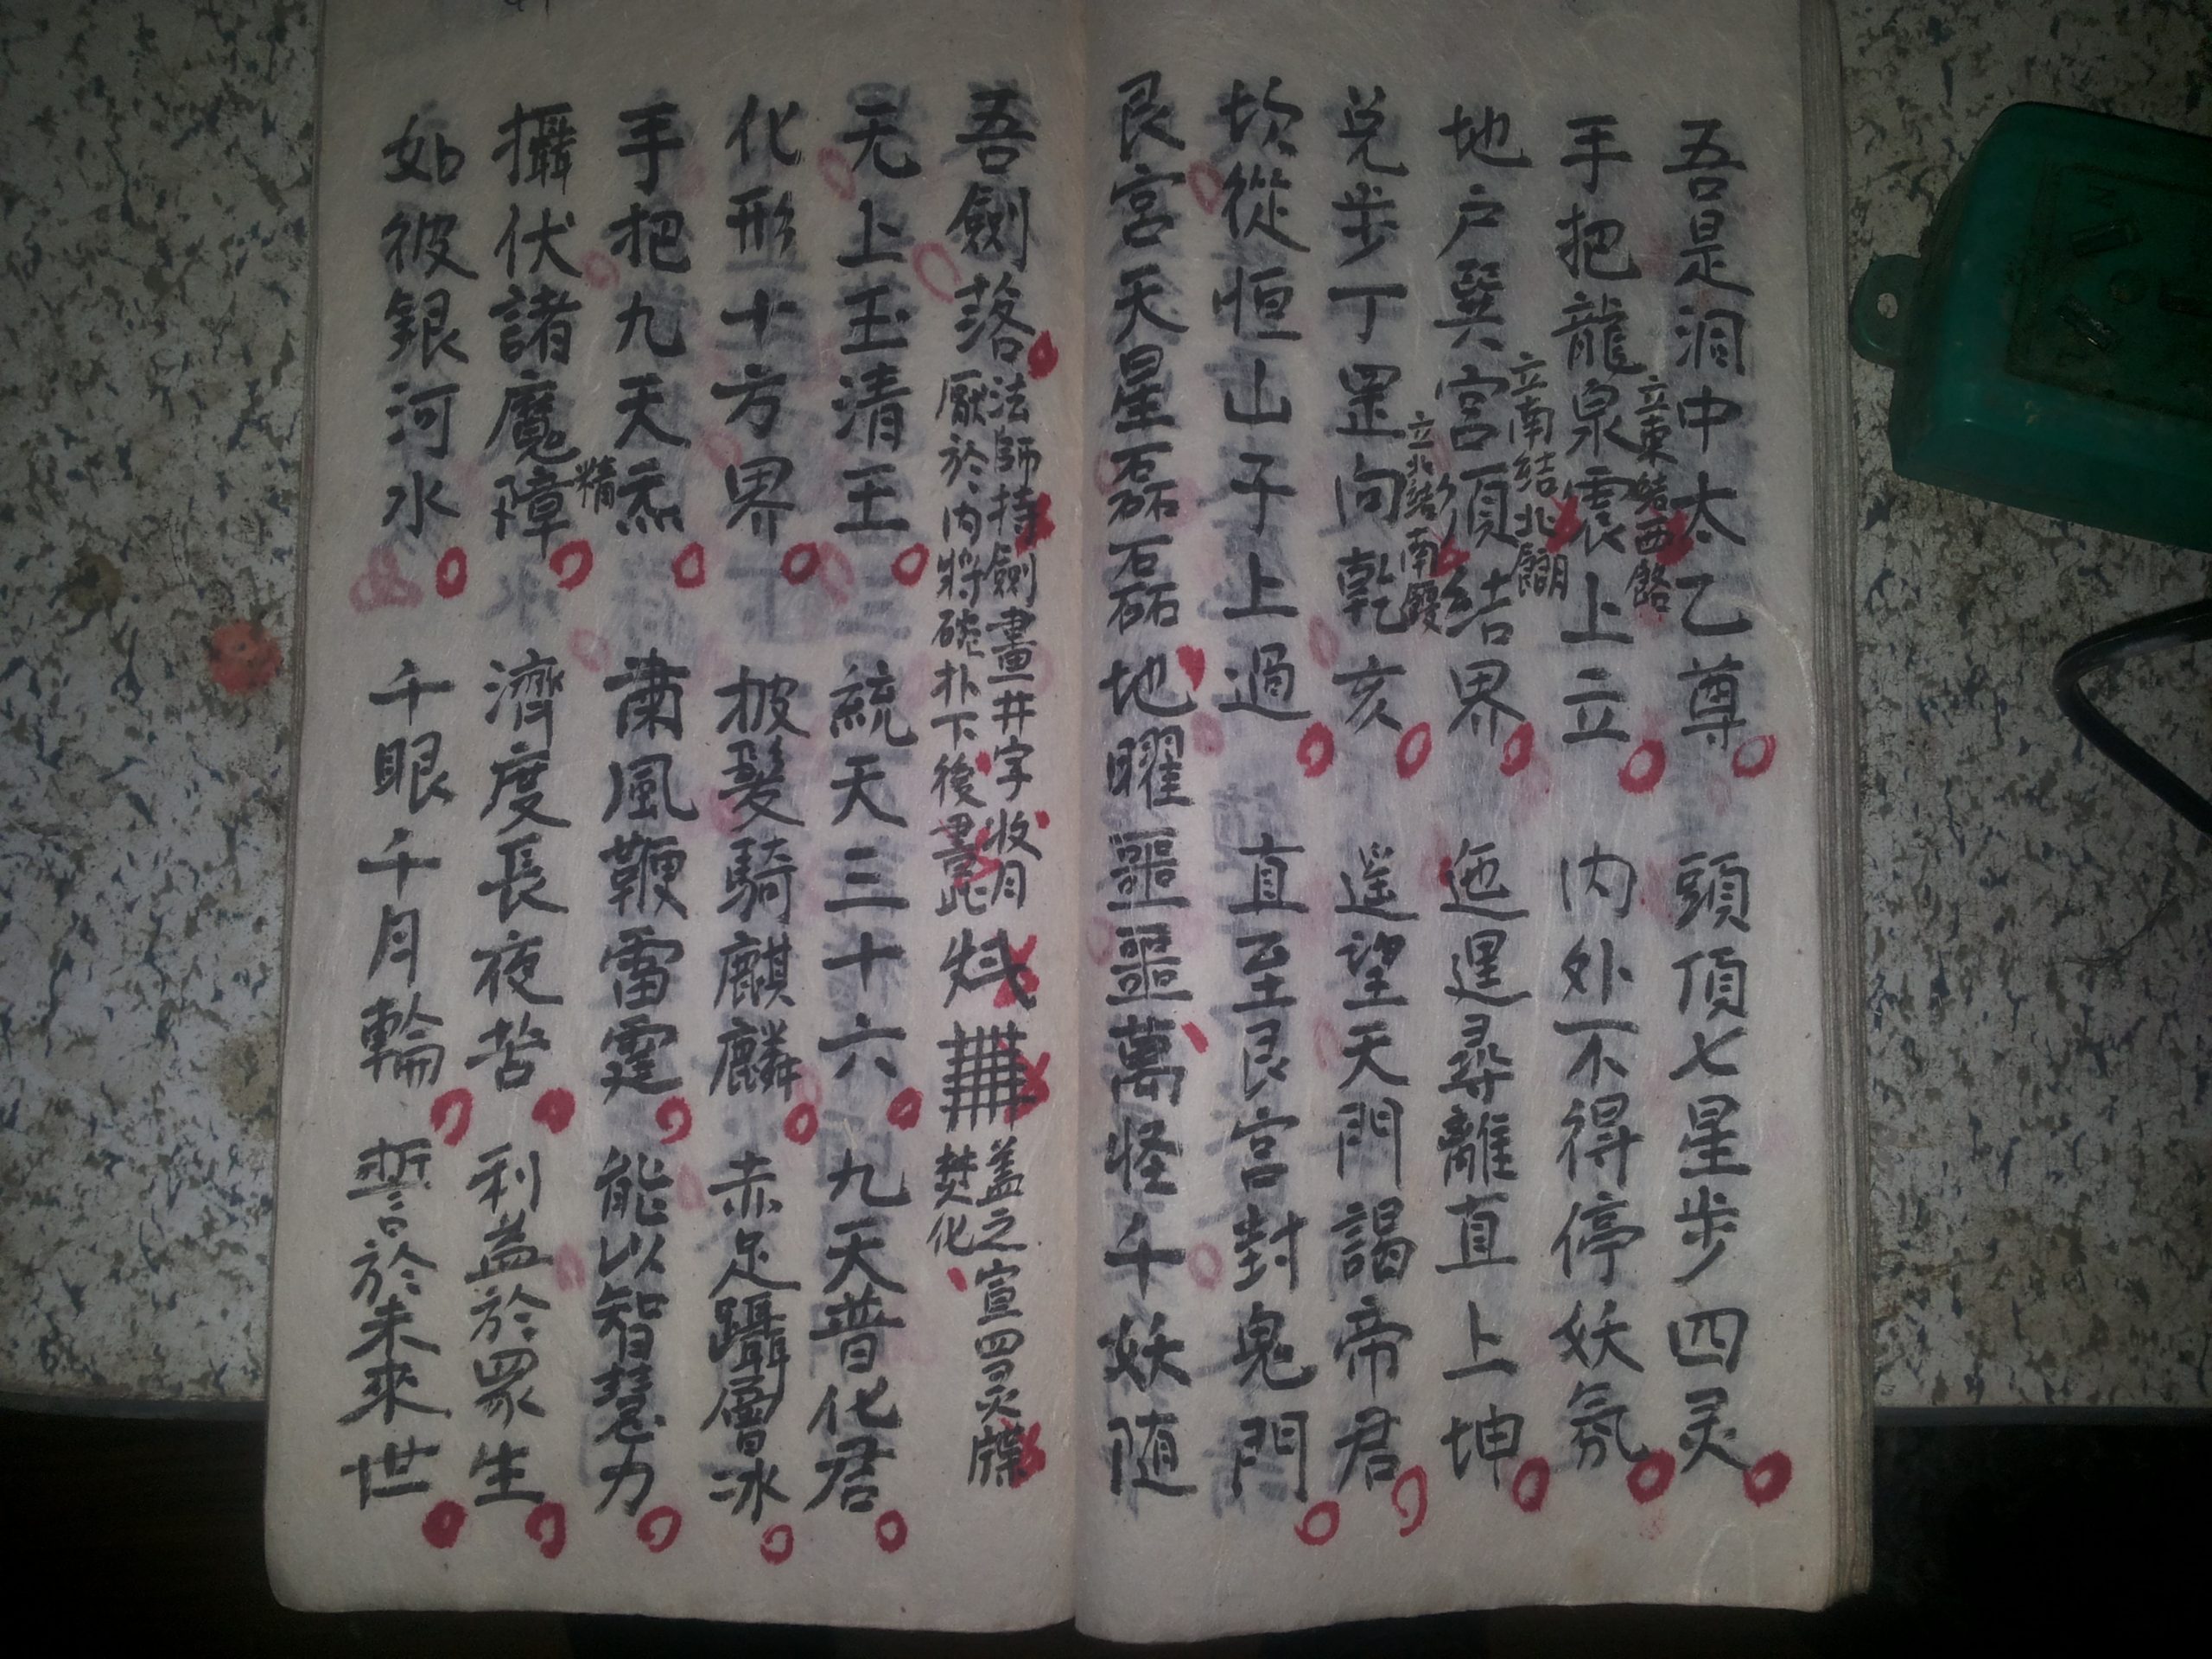 吾是洞中太乙尊 頭頂七星步四灵
立東結西
手把龍泉震上立 内外不得停妖氛
立南結北
地户巽宮須結界 迤邐尋離直上坤
立北結南
兌步丁罡向乾亥 遥望天門謁帝君
坎從恒山子上過 直至艮宮封鬼門
艮宮天星磊磊石砳地曜噩噩萬怪千妖随
吾劍落
法師持劍畫井字收月
厭於内將碗扑下後畫此
蓋之宣四灵牒
焚化
无上玉清王 統天三十六 九天普化君
化形十方界 披髮騎麒麟 赤足躡層冰
手把九天炁 肅風鞭雷霆 能以智慧力
精
攝伏諸魔障 濟度長夜苦 利益於眾生
如彼銀河水 千眼千月輪 誓於未來世